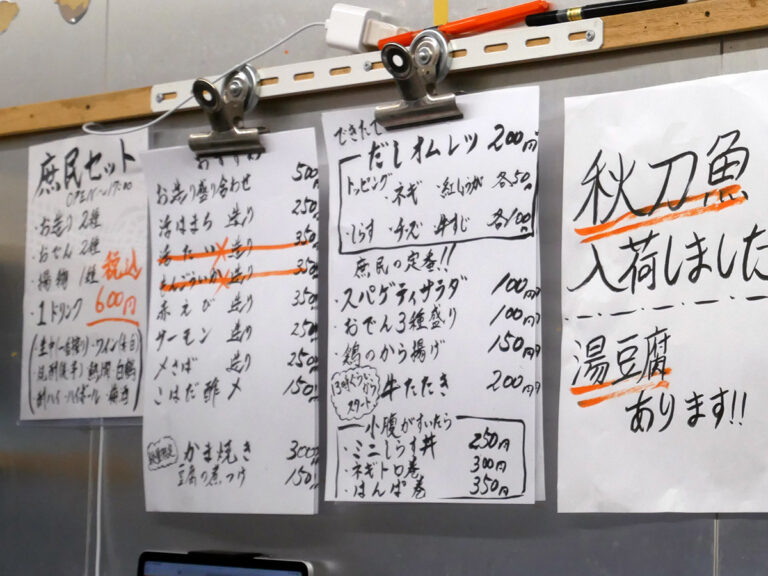 庶民セット
OPEN〜17:00
・お造り2種
・おでん2種
・揚物1種 税込
・1ドリンク 600円
おすすめ
お造り盛り合わせ 500円
活はまち 造り 250
活たい 造り 350
もんごういか 造り 350
赤えび 造り 350
サーモン 造り 250
〆さば 造り 250
こはだ酢〆 150
かま焼き 300
豆腐の煮つけ 150
できたて
だしオムレツ 200円
トッピング
・ネギ ・紅しょうが 各50円
・しらす ・チーズ ・牛すじ 各100円
庶民の定番!!
・スパゲティサラダ 100円
・おでん3種盛り 100円
・鶏のから揚げ 150円
スタート
牛たたき 200円
小腹がすいたら
・ミニしらす丼 250円
・ネギトロ巻 300円
・はんぱ巻 350円
秋刀魚
入荷しました
湯豆腐
あります!!